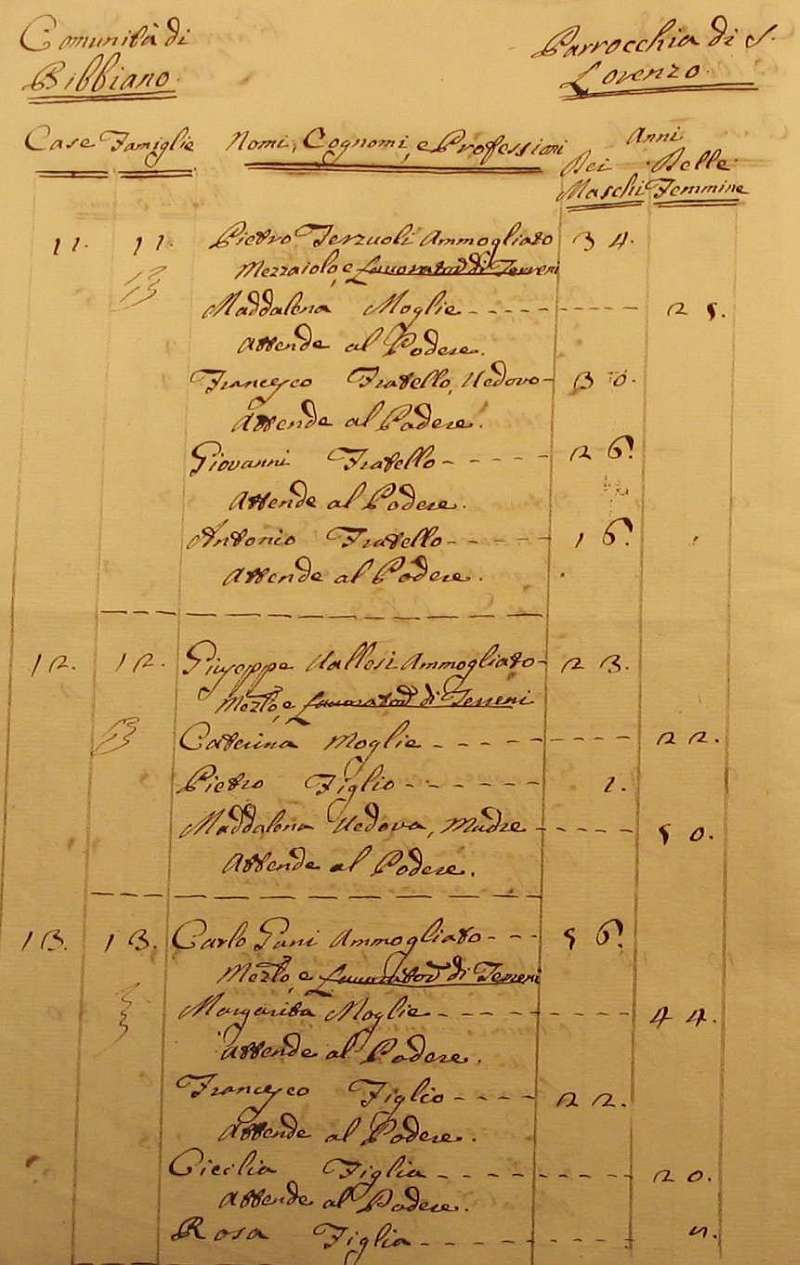 Comunità di Parrocchia di S.
Bibbiano. Lorenzo.
Case Famiglie Nomi, Cognomi, e Professioni Anni
Dei Delle
Maschi Femmine
11. 11. Pietro Terzuoli Ammogliato 34.
Mezzaiolo, e Lavorator di Terreni
Maddalena Moglie 25.
Attende al Podere.
Francesco Fratello, Uedovo 30.
Attende al Podere.
Giovanni Fratello 26.
Attende al Podere.
Antonio Fratello 16.
Attende al Podere.
12. 12. Giuseppe Uallesi Ammogliato 23.
e Lavorator di Terreni
Caterina Moglie 22.
Pietro Figlio 1.
Maddalena Uedova, Madre 50.
Attende al Podere.
13. 13. Carlo Ammogliato 56.
e Lavorator di Terreni
Margarita Moglie 44.
Attende al Podere.
Francesco Figlio 22.
Attende al Podere.
Cicilia Figlia 20.
Attende al Podere.
Rosa Figlia